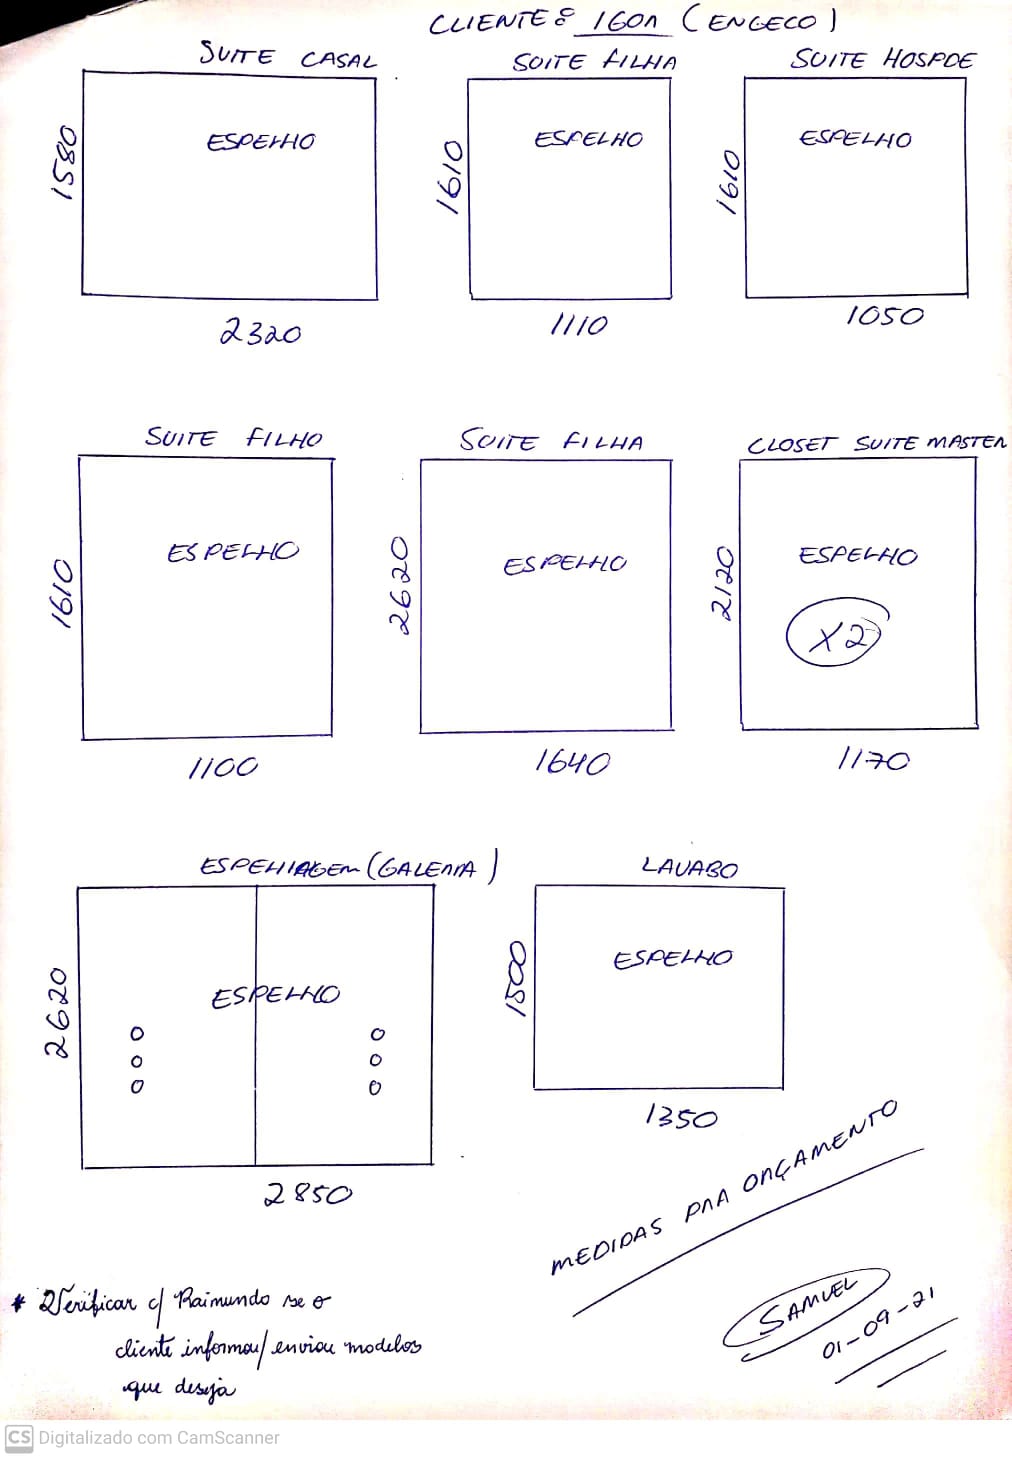 CLIENTE: IGOR (ENGECO)
SUITE CASAL
SUITE FILHA
SUITE HOSPDE
1580
ESPELHO
1610
ESPELHO
1610
ESPELHO
2320
1110
1050
SUITE FILHO
SUITE FILHA
CLOSET SUITE MASTER
1610
ESPELHO
2620
ESPELHO
2120
ESPELHO
X2
1100
1640
1170
ESPELHAGEM (GALERIA)
LAVABO
2620
ESPELHO
1500
ESPELHO
2850
1350
MEDIDAS PRA ORÇAMENTO
* Verificar c/ Raimundo se o
cliente informou/enviou modelos
que deseja
SAMUEL
01-09-21
CS Digitalizado com CamScanner